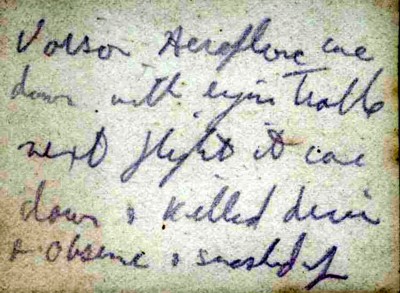 Voison Aeroplane came
down with engin trouble
next flight it came
down & killed driver
& observe & smashed up